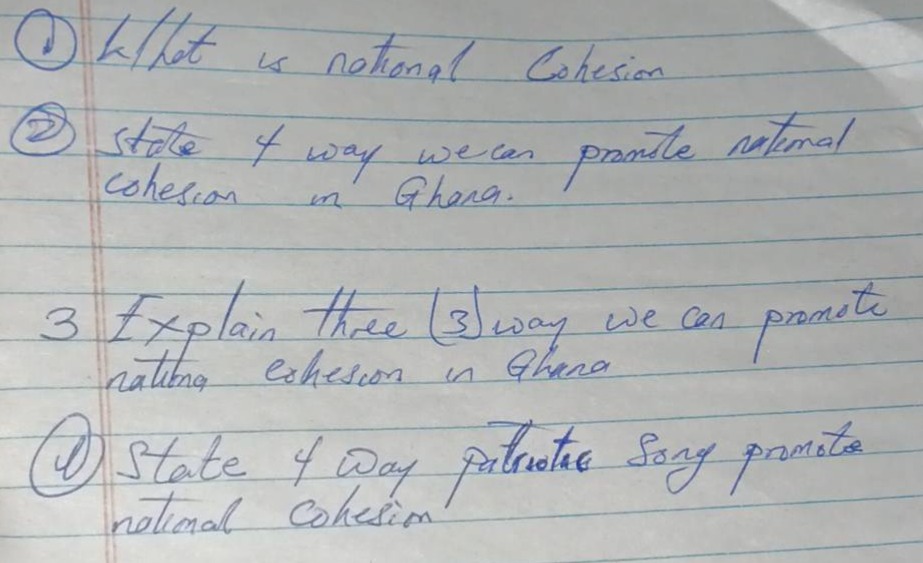 ① What is national Cohesion
② State 4 way we can promote national
cohesion in Ghana.
3 Explain three (3) way we can promote
nationa cohesion in Ghana
④ State 4 way patriotic Song promote
national Cohesion